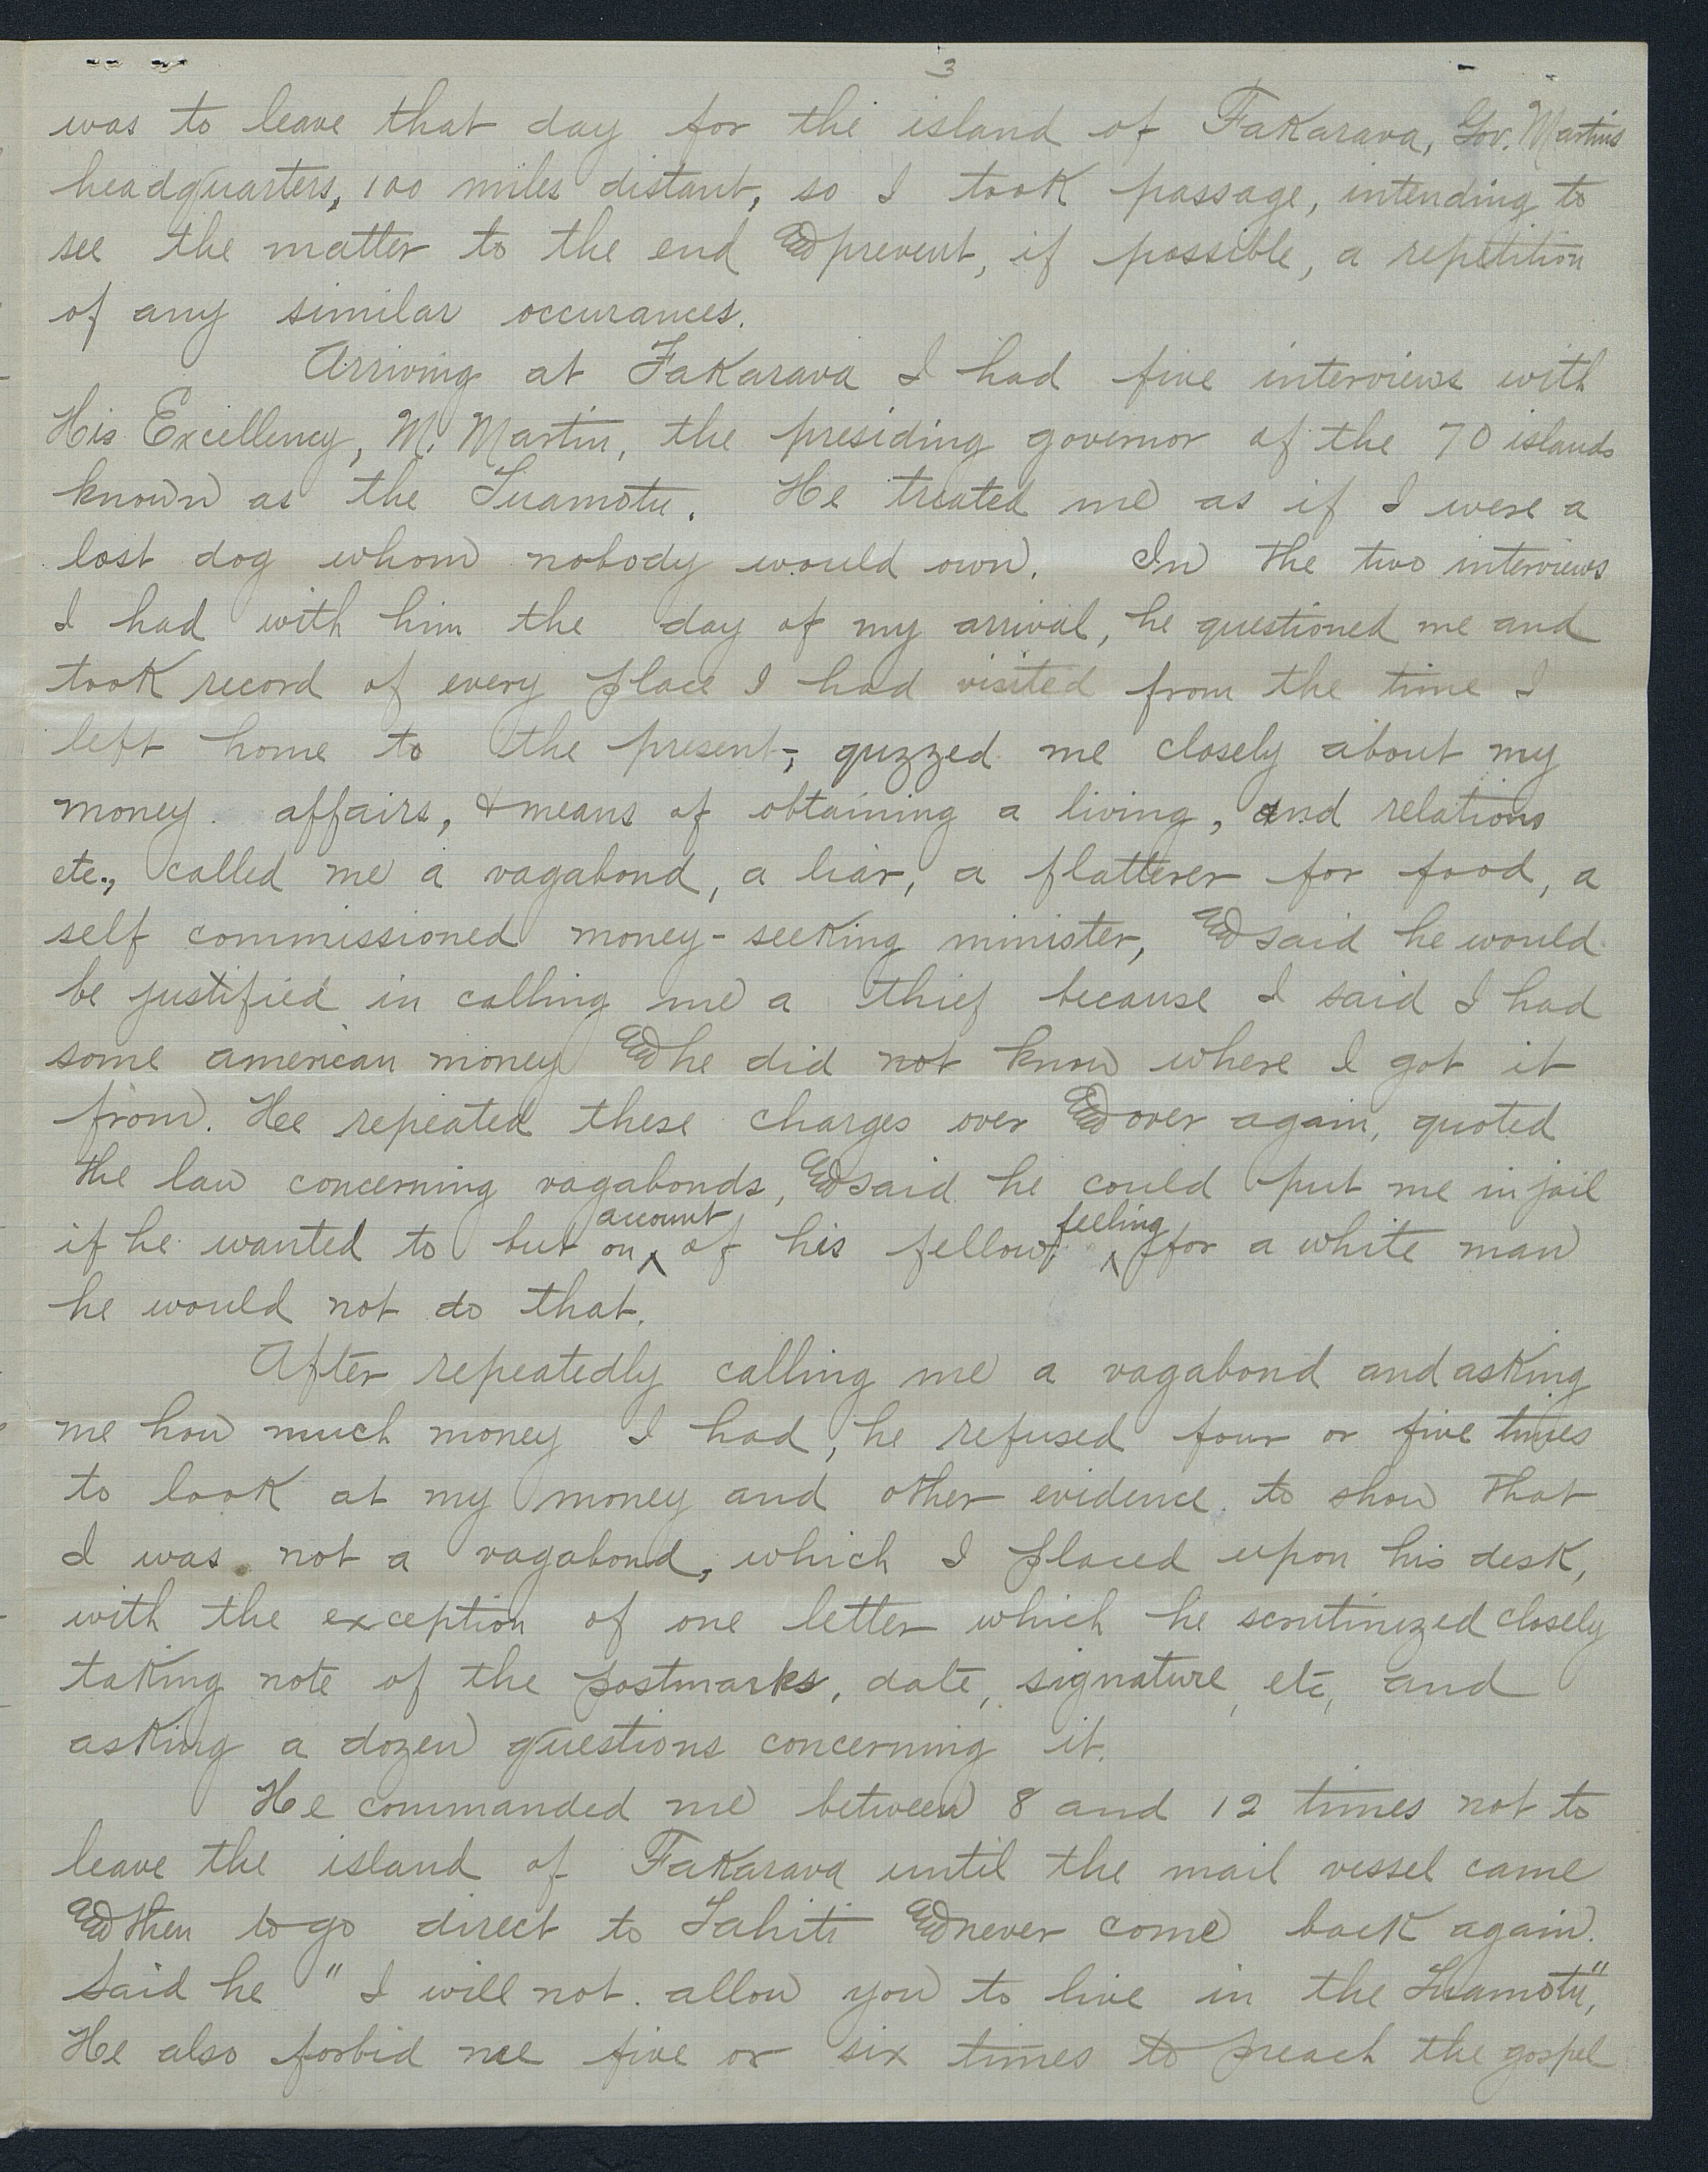 3
was to leave that day for the island of Fakarava, Gov. Martins
headquarters, 100 miles distant, so I took passage, intending to
see the matter to the end and prevent, if possible, a repetition
of any similar occurances.
Arriving at Fakarava I had five interviews with
His Excellency, M. Martin, the presiding governor of the 70 islands
known as the Tuamotu. He treated me as if I were a
lost dog whom nobody would own. In the two interviews
I had with him the day of my arrival, he questioned me and
took record of every place I had visited from the time I
left home to the present; quzzed me closely about my
money affairs, & means of obtaining a living, and relations
etc., called me a vagabond, a liar, a flatterer for food, a
self commissioned money-seeking minister, and said he would
be justified in calling me a thief because I said I had
some american money and he did not know where I got it
from. He repeated these charges over and over again, quoted
the law concerning vagabonds, and said he could put me in jail
if he wanted to but on account of his fellow feeling for a white man
he would not do that.
After repeatedly calling me a vagabond and asking
me how much money I had, he refused four or five times
to look at my money and other evidence to show that
I was not a vagabond, which I placed upon his desk,
with the exception of one letter which he scrutinized closely
taking note of the postmarks, date, signature, etc, and
asking a dozen questions concerning it.
He commanded me between 8 and 12 times not to
leave the island of Fakarava until the mail vessel came
and then to go direct to Tahiti and never come back again.
Said he "I will not allow you to live in the Tuamotu",
He also forbid me five or six times to preach the gospel